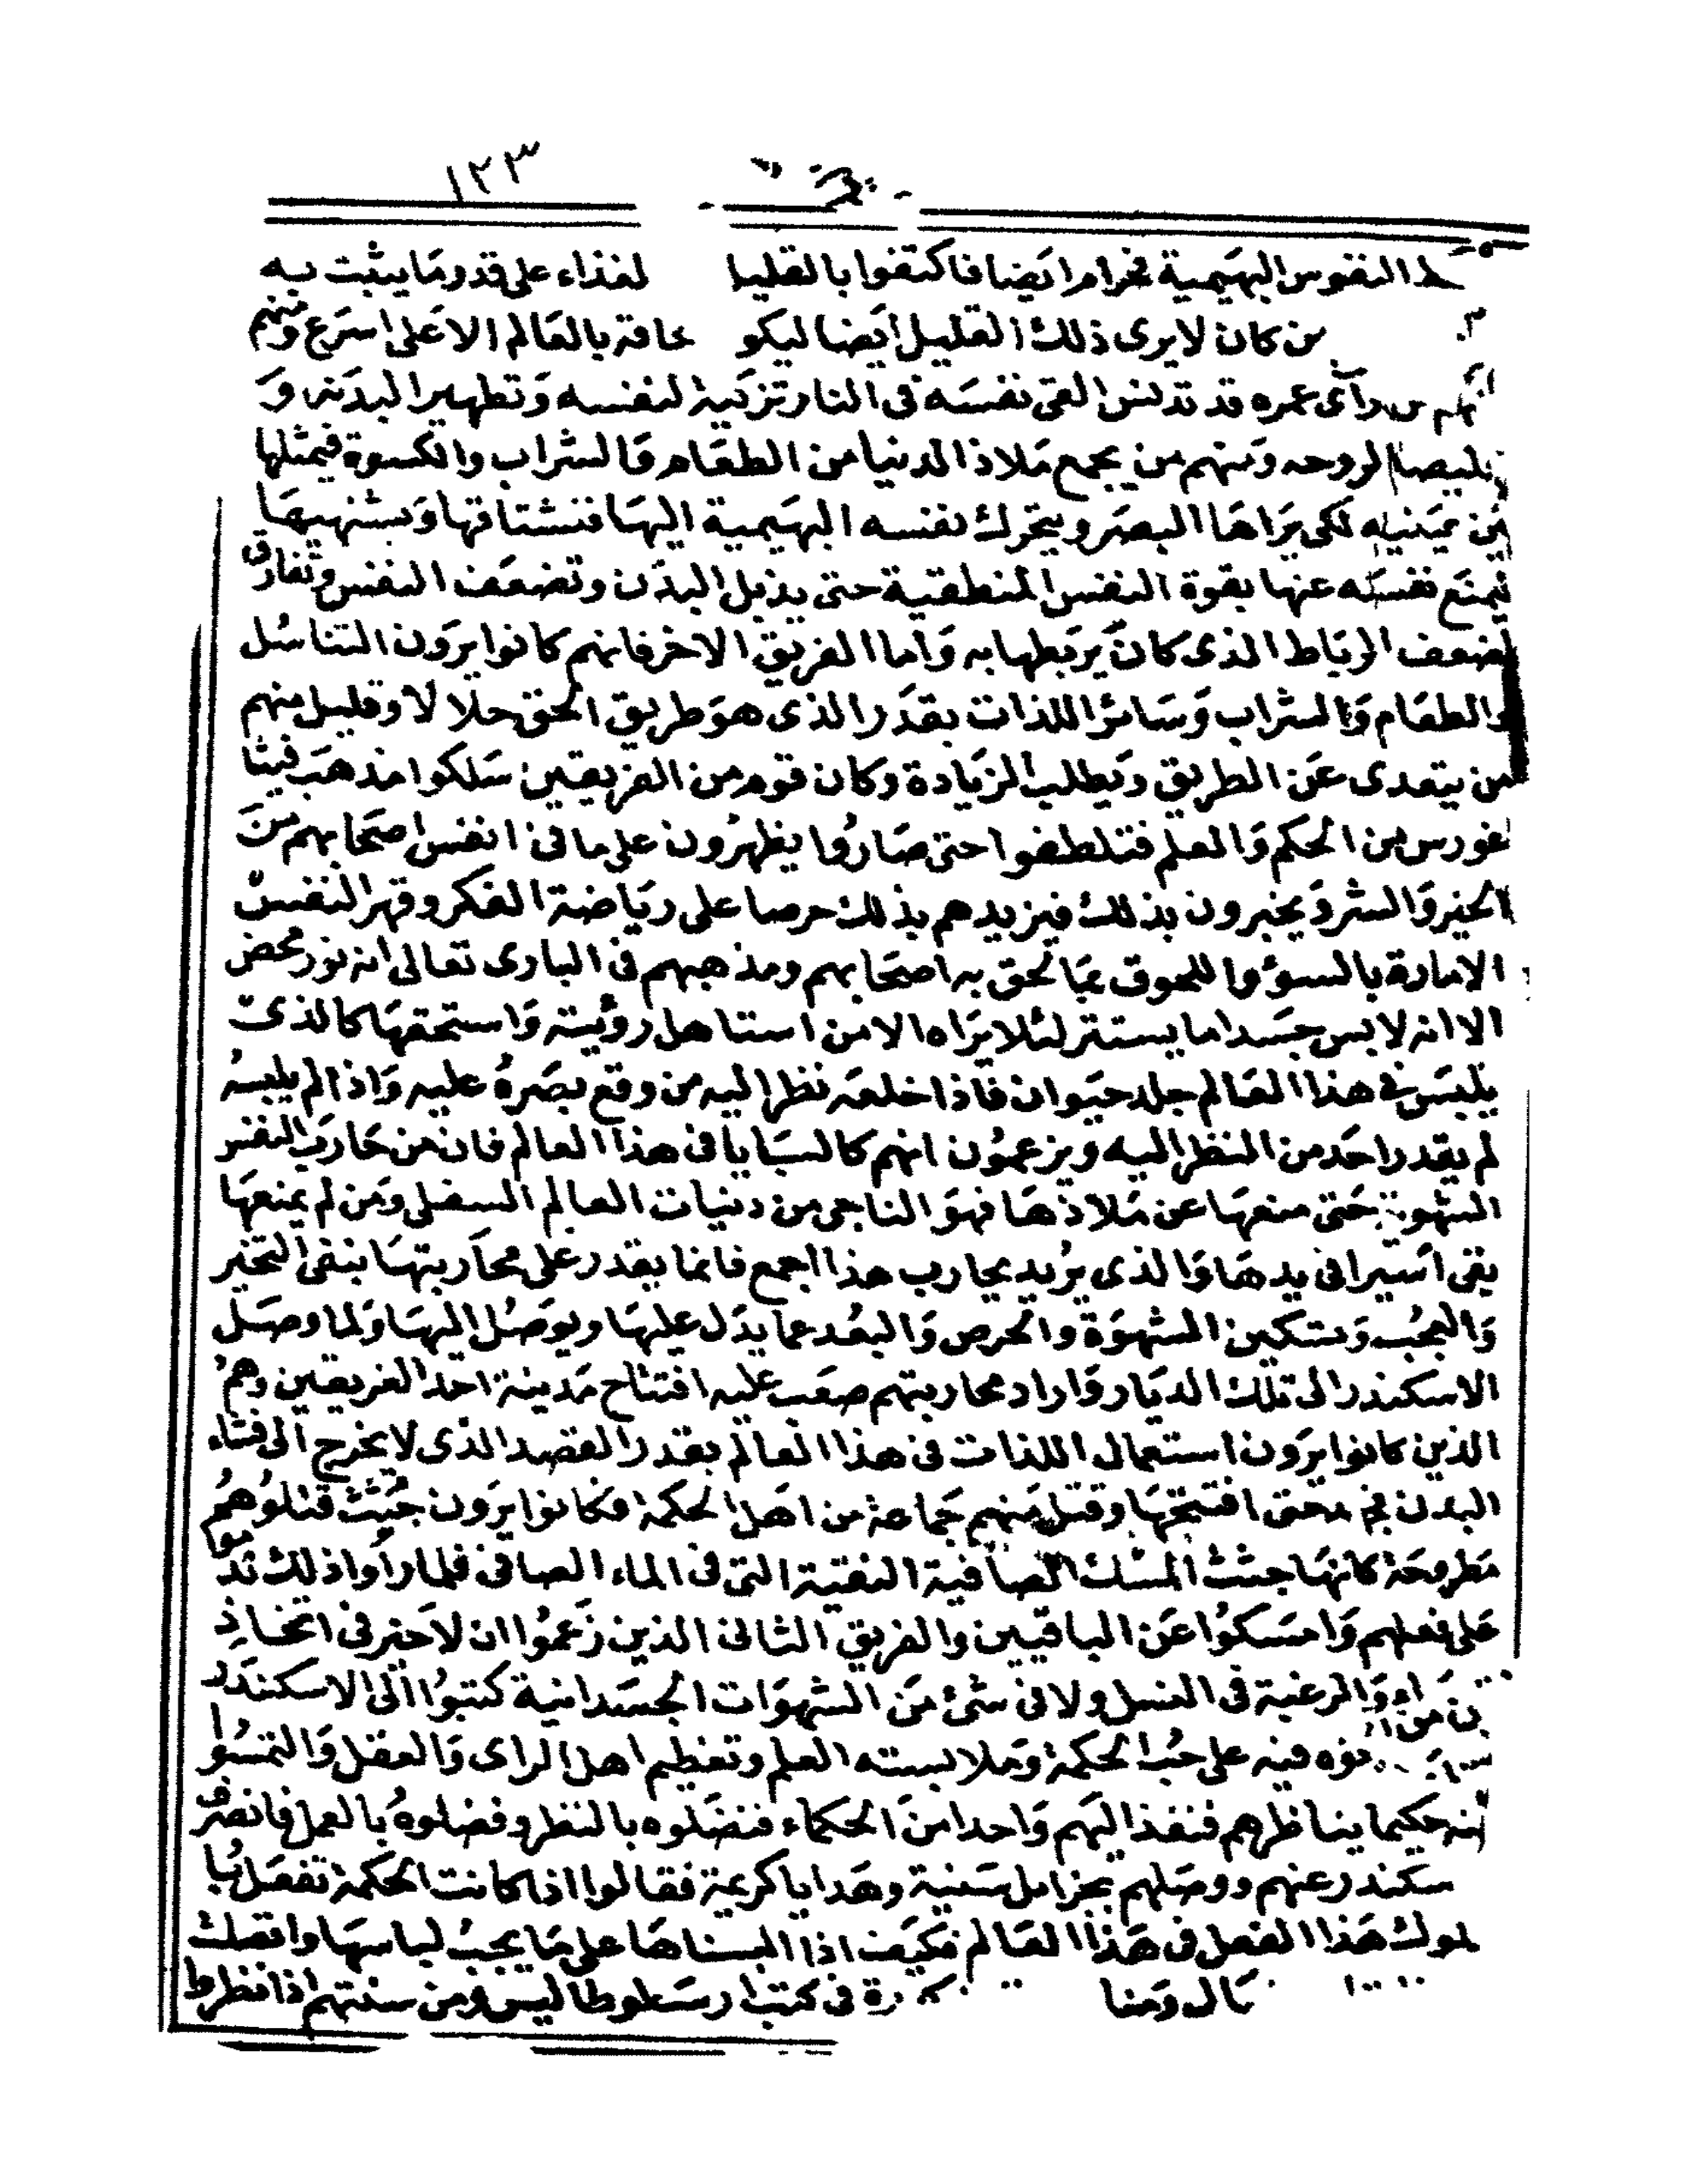 ١٢٣
النفوس البهيمية فحرام ايضا فاكتفوا بالقليل لغذاء على قدر ما يثبت به
من كان لا يرى ذلك القليل ايضا ليكو لحاقه بالعالم الاعلى اسرع ومنهم
من راى عمره قد تدنس القى نفسه فى النار تزكية لنفسه وتطهيرا لبدنه و
تخليصا لروحه ومنهم من يجمع ملاذ الدنيا من الطعام والشراب والكسوة فيمثلها
بين عينيه لكى يراها البصر ويتحرك نفسه البهيمية اليها فتشتاقها ويشتهيها
فيمنع نفسه عنها بقوة النفس المنطقية حتى يذبل البدن وتضعف النفس وتفارق
لضعف الرباط الذى كان يربطها به واما الفريق الاخر فانهم كانوا يرون التناسل
والطعام والشراب وسائر اللذات بقدر الذى هو طريق الحق حلالا وقليل منهم
من يتعدى عن الطريق ويطلب الزيادة وكان قوم من الفريقين سلكوا مذهب فيثا
غورس من الحكم والعلم فتلطفوا حتى صاروا يظهرون على ما فى انفس اصحابهم من
الخير والشر ويخبرون بذلك فيزيدهم بذلك حرصا على رياضة الفكر وقهر النفس
الامارة بالسوؤ واللحوق بما لحق به اصحابهم ومذهبهم فى البارى تعالى انه نور محض
الا انه لابس جسدا ما يستتر لئلا يراه الا من استاهل رؤيته واستحقها كالذى
يلبس فى هذا العالم جلد حيوان فاذا خلعه نظر اليه من وقع بصره عليه واذا لم يلبسه
لم يقدر احد من النظر اليه ويزعمون انهم كالسبايا فى هذا العالم فان من حارب النفس
الشهوية حتى منعها عن ملاذها فهو الناجى من دنيات العالم السفلى ومن لم يمنعها
بقى اسيرا فى يدها والذى يريد يحارب هذا اجمع فانما يقدر على محاربتها بنفى التجبر
والعجب وتسكين الشهوة والحرص والبعد عما يدل عليها ويوصل اليها ولما وصل
الاسكندر الى تلك الديار واراد محاربتهم صعب عليه افتتاح مدينة احد الفريقين وهم
الذين كانوا يرون استعمال اللذات فى هذا العالم بقدر القصد الذى لا يخرج الى فساد
البدن حتى افتتحها وقتل منهم جماعة من اهل الحكمة فكانوا يرون جثث قتلوهم
مطروحة كانها جثث السمك الصافية النقية التى فى الماء الصافى فلما راوا ذلك ندموا
على فعلهم وامسكوا عن الباقيين والفريق الثانى الذين زعموا ان لا خير فى اتخاذ
والرغبة فى النسل ولا فى شئ من الشهوات الجسدانية كتبوا الى الاسكندر
فيه على حب الحكمة وملابسته العلم وتعظيم اهل الراى والعقل والتمسوا
منه حكيما يناظرهم فنفذ اليهم واحدا من الحكماء فنضلوه بالنظر وفضلوه بالعمل فانصرف
سكندر عنهم ووصلهم بجزايل سنية وهدايا كريمة فقالوا اذا كانت الحكمة تفعل با
لملوك هذا الفعل فى هذا العالم فكيف اذا البسناها على ما يجب لباسها واتصلت
ومنا فى كتب ارسطوطاليس ومن سنتهم اذا نظروا